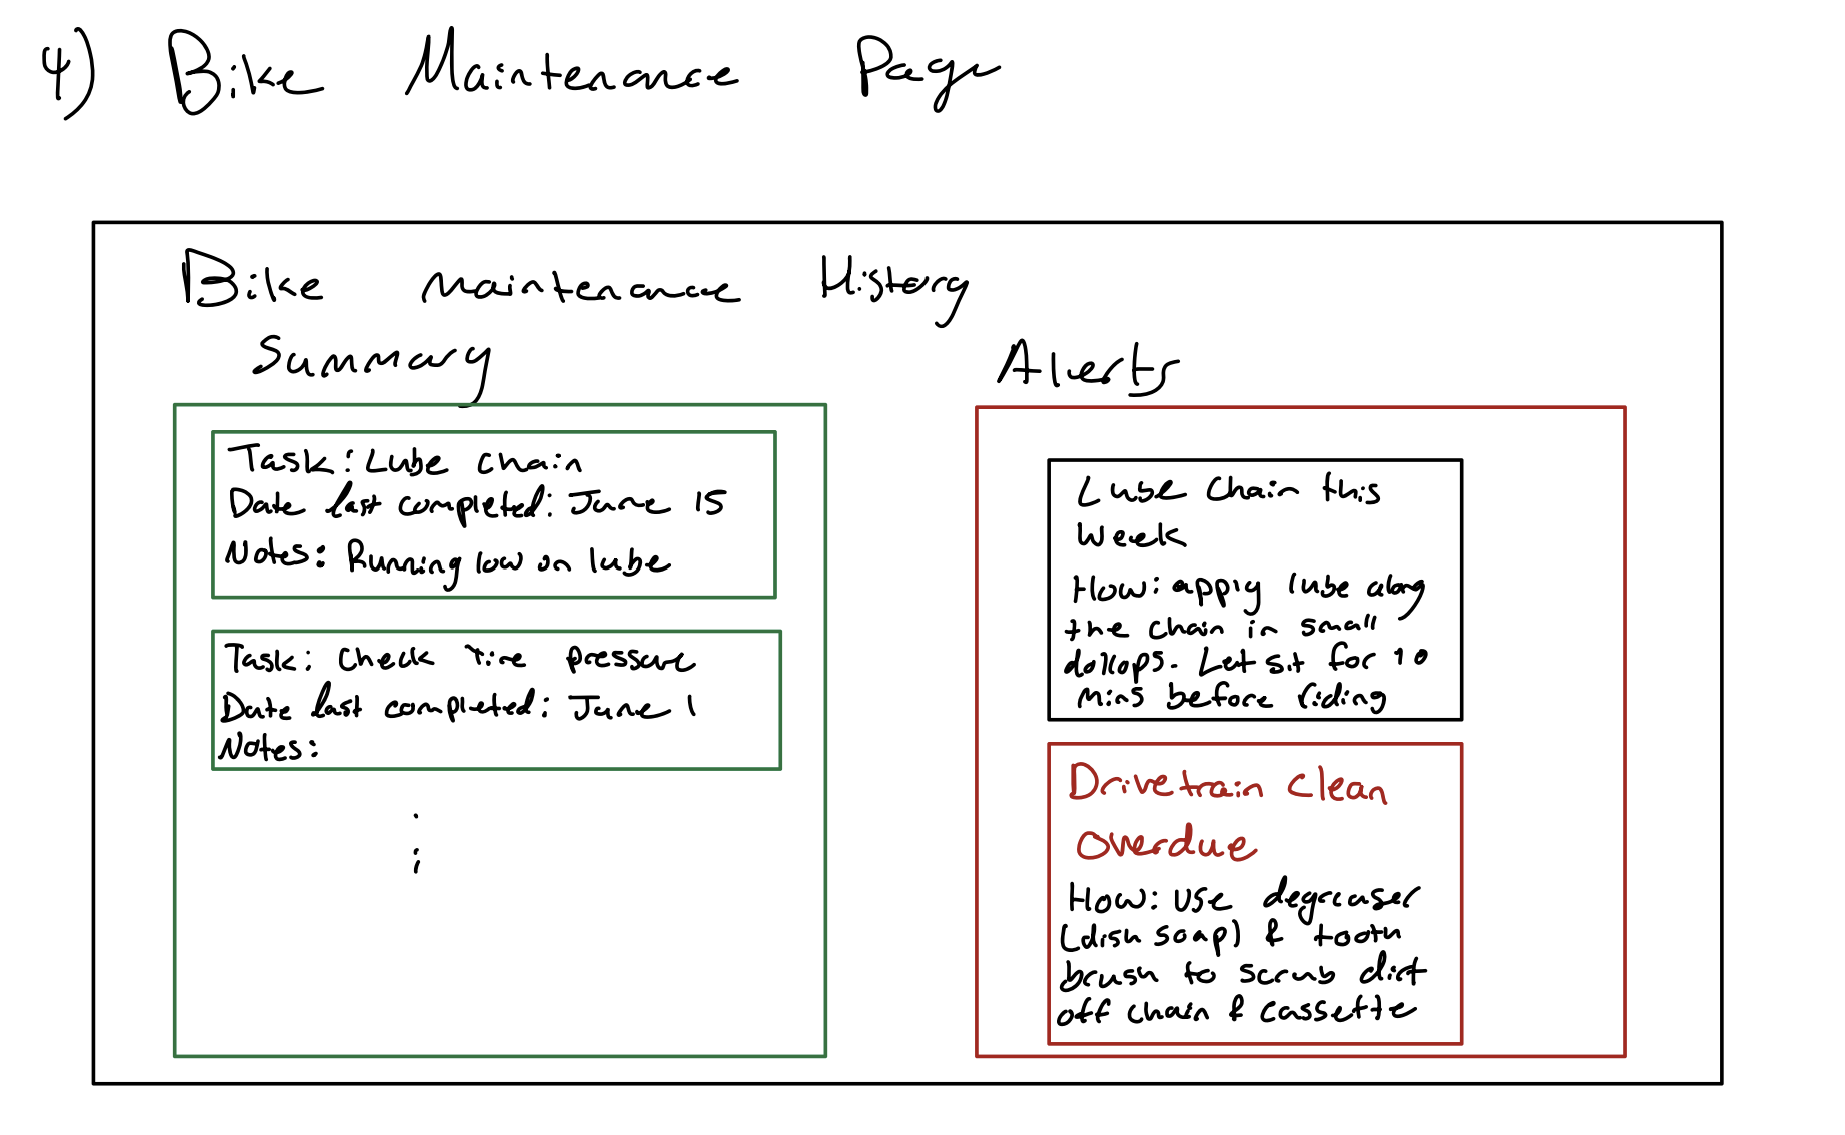 4) Bike Maintenance Page
Bike maintenance History
Summary
Task: Lube chain
Date last completed: June 15
Notes: Running low on lube
Task: Check tire pressure
Date last completed: June 1
Notes:
Alerts
Lube Chain this
Week
How: apply lube along
the chain in small
dollops. Let sit for 10
mins before riding
Drivetrain Clean
Overdue
How: use degreaser
(dish soap) & tooth
brush to scrub dirt
off chain & cassette